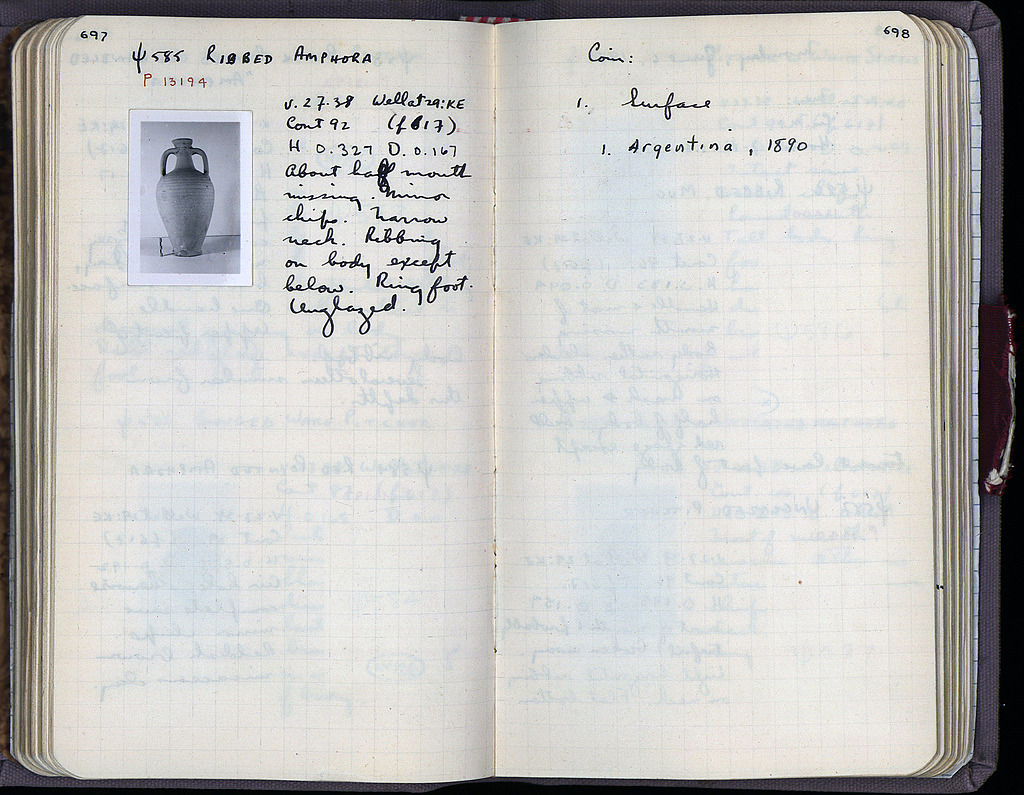 697
Ψ 585 RIBBED AMPHORA
P 13194
v.27.38 Well at 29:KE
Cont 92 (f 617)
H 0.327 D. 0.167
About half mouth
missing. Minor
chips. Narrow
neck. Ribbing
on body except
below. Ring foot.
Unglazed.
698
Coin:
1. Surface
1. Argentina, 1890